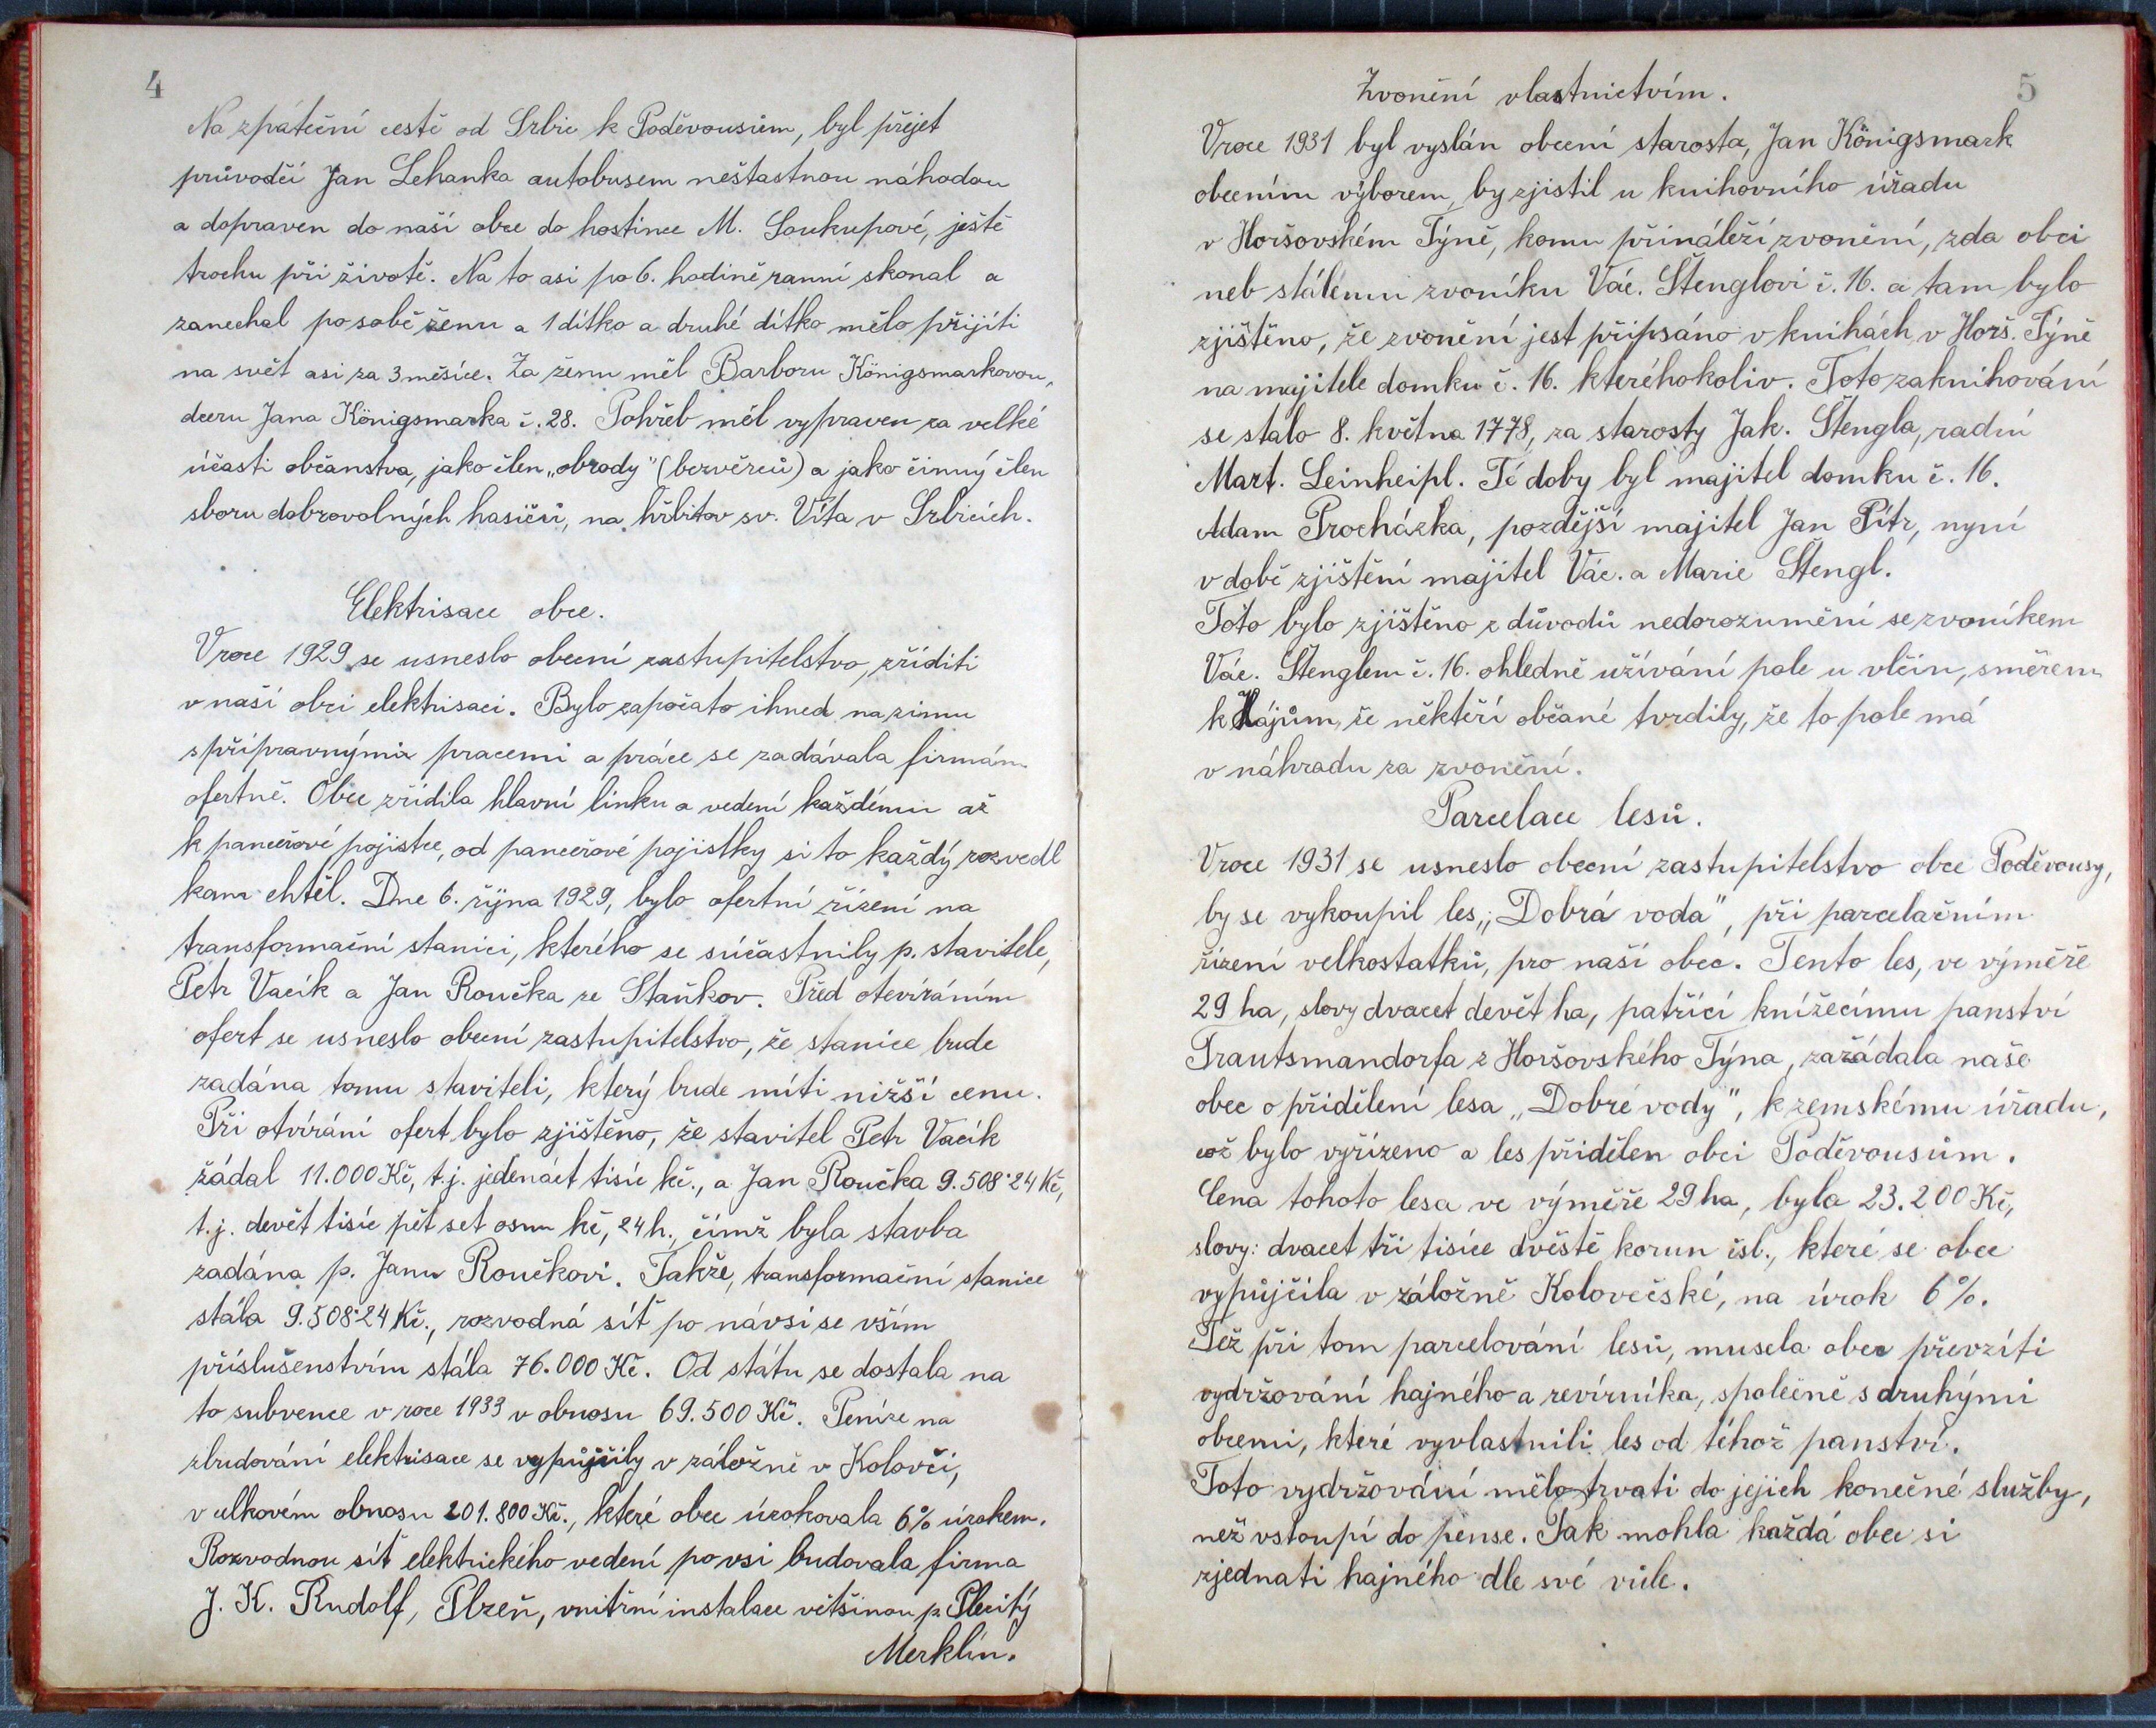 4
Na zpáteční cestě od Srbic k Poděvousům, byl přejet
průvodčí Jan Lehanka autobusem nešťastnou náhodou
a dopraven do naší obce do hostince M. Soukupové, ještě
trochu při životě. Na to asi po 6. hodině ranní skonal a
zanechal po sobě ženu a 1 dítko a druhé dítko mělo přijíti
na svět asi za 3 měsíce. Za ženu měl Barboru Königsmarkovou,
dceru Jana Königsmarka č. 28. Pohřeb měl vypraven za velké
účasti občanstva, jako člen „obrody" (bezvěrců) a jako činný člen
sboru dobrovolných hasičů, na hřbitov sv. Víta v Srbicích.
Elektrisace obce.
V roce 1929 se usneslo obecní zastupitelstvo, zříditi
v naší obci elektrisaci. Bylo započato ihned na zimu
s přípravnými pracemi a práce se zadávala firmám
ofertně. Obec zřídila hlavní linku a vedení každému až
k pancéřové pojistce, od pancéřové pojistky si to každý rozvedl
kam chtěl. Dne 6. října 1929, bylo ofertní řízení na
transformační stanici, kterého se súčastnily p. stavitele,
Petr Vacík a Jan Roučka ze Staňkov. Před otevíráním
ofert se usneslo obecní zastupitelstvo, že stanice bude
zadána tomu staviteli, který bude míti nižší cenu.
Při otvírání ofert bylo zjištěno, že stavitel Petr Vacík
žádal 11.000 Kč, t.j. jedenáct tisíc kč., a Jan Roučka 9.508·24 Kč,
t.j. devět tisíc pět set osm kč, 24 h., čímž byla stavba
zadána p. Janu Roučkovi. Takže, transformační stanice
stála 9.508·24 Kč., rozvodná síť po návsi se vším
příslušenstvím stála 76.000 Kč. Od státu se dostala na
to subvence v roce 1933 v obnosu 69.500 Kč. Peníze na
zbudování elektrisace se vypůjčily v záložně v Kolovči,
v celkovém obnosu 201.800 Kč., které obec úrokovala 6% úrokem.
Rozvodnou síť elektrického vedení po vsi budovala firma
J. K. Rudolf, Plzeň, vnitřní instalace většinou p. Plecitý
Merklín.
5
Zvonění vlastnictvím.
V roce 1931 byl vyslán obecní starosta, Jan Königsmark
obecním výborem, by zjistil u knihovního úřadu
v Horšovském Týně, komu přináleží zvonění, zda obci
neb stálému zvoníku Vác. Štenglovi č. 16. a tam bylo
zjištěno, že zvonění jest připsáno v knihách v Horš. Týně
na majitele domku č. 16. kteréhokoliv. Toto zaknihování
se stalo 8. května 1778, za starosty Jak. Štengla, radní
Mart. Leinheipl. Té doby byl majitel domku č. 16.
Adam Procházka, pozdější majitel Jan Pítr, nyní
v době zjištění majitel Vác. a Marie Štengl.
Toto bylo zjištěno z důvodů nedorozumění se zvoníkem
Vác. Štenglem č. 16. ohledně užívání pole u vlčin, směrem
k Hájům, že někteří občané tvrdily, že to pole má
v náhradu za zvonění.
Parcelace lesů.
V roce 1931 se usneslo obecní zastupitelstvo obce Poděvousy,
by se vykoupil les „Dobrá voda", při parcelačním
řízení velkostatků, pro naší obec. Tento les, ve výměře
29 ha, slovy dvacet devět ha, patřící knížecímu panství
Trautsmandorfa z Horšovského Týna, zažádala naše
obec o přidělení lesa „Dobré vody", k zemskému úřadu,
což bylo vyřízeno a les přidělen obci Poděvousům.
Cena tohoto lesa ve výměře 29 ha, byla 23.200 Kč,
slovy: dvacet tři tisíce dvěstě korun čsl., které se obec
vypůjčila v záložně Kolovečské, na úrok 6%.
Též při tom parcelování lesů, musela obec převzíti
vydržování hajného a revírníka, společně s druhými
obcemi, které vyvlastnili les od téhož panství.
Toto vydržování mělo trvati do jejich konečné služby,
než vstoupí do pense. Pak mohla každá obec si
zjednati hajného dle své vůle.